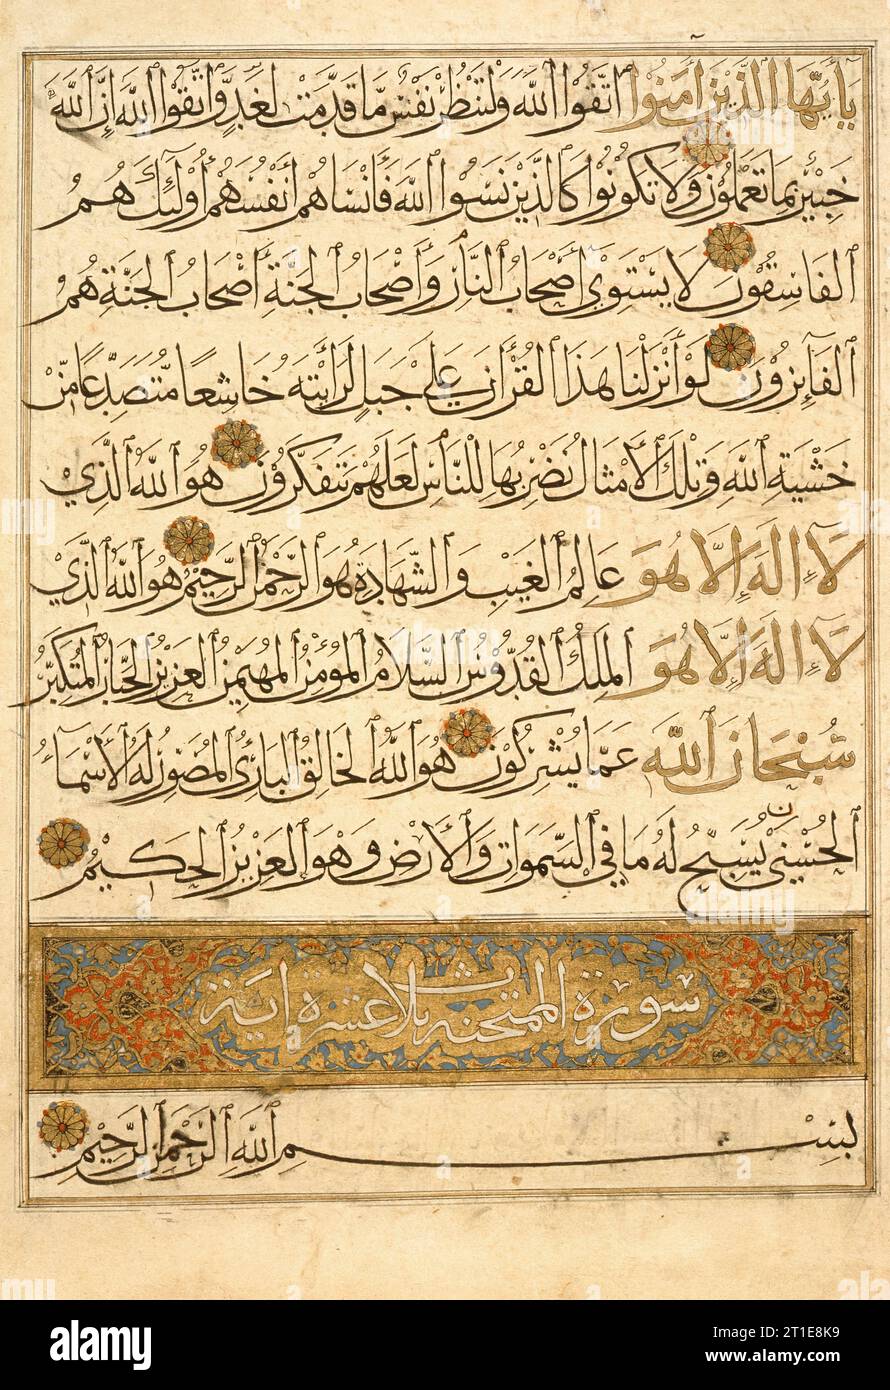 يَا أَيُّهَا الَّذِينَ آمَنُوا اتَّقُوا اللَّهَ وَلْتَنظُرْ نَفْسٌ مَّا قَدَّمَتْ لِغَدٍ وَاتَّقُوا اللَّهَ إِنَّ اللَّهَ
خَبِيرٌ بِمَا تَعْمَلُونَ وَلَا تَكُونُوا كَالَّذِينَ نَسُوا اللَّهَ فَأَنْسَاهُمْ أَنْفُسَهُمْ أُولَٰئِكَ هُمُ
الْفَاسِقُونَ لَا يَسْتَوِي أَصْحَابُ النَّارِ وَأَصْحَابُ الْجَنَّةِ أَصْحَابُ الْجَنَّةِ هُمُ
الْفَائِزُونَ لَوْ أَنْزَلْنَا هَذَا الْقُرْآنَ عَلَى جَبَلٍ لَرَأَيْتَهُ خَاشِعًا مُتَصَدِّعًا مِنْ
خَشْيَةِ اللَّهِ وَتِلْكَ الْأَمْثَالُ نَضْرِبُهَا لِلنَّاسِ لَعَلَّهُمْ يَتَفَكَّرُونَ هُوَ اللَّهُ الَّذِي
لَا إِلَهَ إِلَّا هُوَ عَالِمُ الْغَيْبِ وَالشَّهَادَةِ هُوَ الرَّحْمَنُ الرَّحِيمُ هُوَ اللَّهُ الَّذِي
لَا إِلَهَ إِلَّا هُوَ الْمَلِكُ الْقُدُّوسُ السَّلَامُ الْمُؤْمِنُ الْمُهَيْمِنُ الْعَزِيزُ الْجَبَّارُ الْمُتَكَبِّرُ
سُبْحَانَ اللَّهِ عَمَّا يُشْرِكُونَ هُوَ اللَّهُ الْخَالِقُ الْبَارِئُ الْمُصَوِّرُ لَهُ الْأَسْمَاءُ
الْحُسْنَى يُسَبِّحُ لَهُ مَا فِي السَّمَوَاتِ وَالْأَرْضِ وَهُوَ الْعَزِيزُ الْحَكِيمُ
سورة الممتحنة ثلاث عشرة اية
بِسْمِ اللَّهِ الرَّحْمَنِ الرَّحِيمِ
alamy
Image ID: 2T1E8K9
www.alamy.com